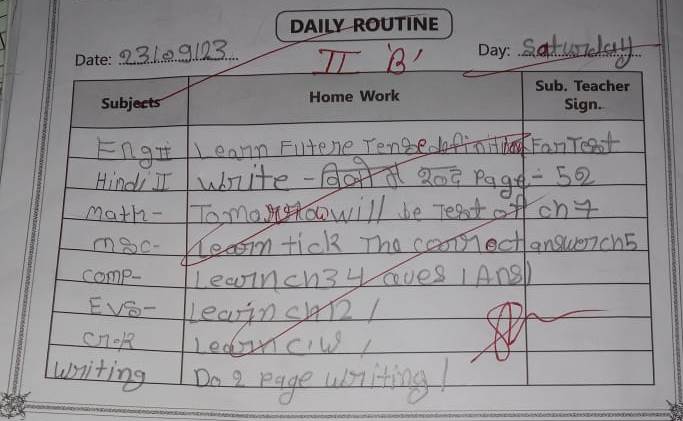 DAILY ROUTINE
Date: 23/09/23 II 'B' Day: Saturday
Subjects Home Work Sub. Teacher Sign.
Eng II Learn Futere Tense definition Fan Test
Hindi II write - page - 52
math- Tomorrow will be Test of ch 7
msc- Learn tick The correct answer ch5
comp- Learn ch 3 4 Ques 1 Ans)
EVS- Learn ch 12 /
Learn C.W /
Writing Do 2 page writing /